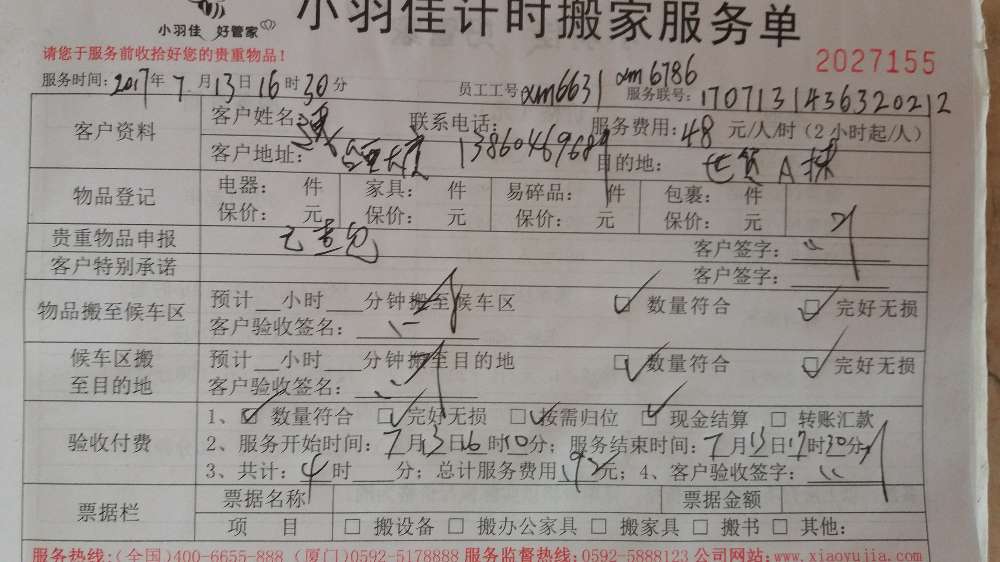 小羽佳计时搬家服务单
小羽佳 好管家
请您于服务前收拾好您的贵重物品！
2027155
服务时间：2017年7月13日16时30分 员工工号 xm6631 xm6786 服务联号：1707131436320212
客户资料
客户姓名： 联系电话：13860469689 服务费用：48元/人/时（2小时起/人）
客户地址： 目的地： A栋
物品登记
电器： 件 家具： 件 易碎品： 件 包裹： 件
保价： 元 保价： 元 保价： 元 保价： 元
贵重物品申报 客户签字：
客户特别承诺 客户签字：
物品搬至候车区
预计 小时 分钟搬至候车区 数量符合 完好无损
客户验收签名：
候车区搬至目的地
预计 小时 分钟搬至目的地 数量符合 完好无损
客户验收签名：
验收付费
1、数量符合 完好无损 按需归位 现金结算 转账汇款
2、服务开始时间：7月13日16时10分；服务结束时间：7月13日17时30分
3、共计：4时 分；总计服务费用192元；4、客户验收签字：
票据栏
票据名称 票据金额
项 目 搬设备 搬办公家具 搬家具 搬书 其他：
服务热线：(全国)400-6655-888 (厦门)0592-5178888 服务监督热线：0592-5888123 公司网站：www.xiaoyujia.com